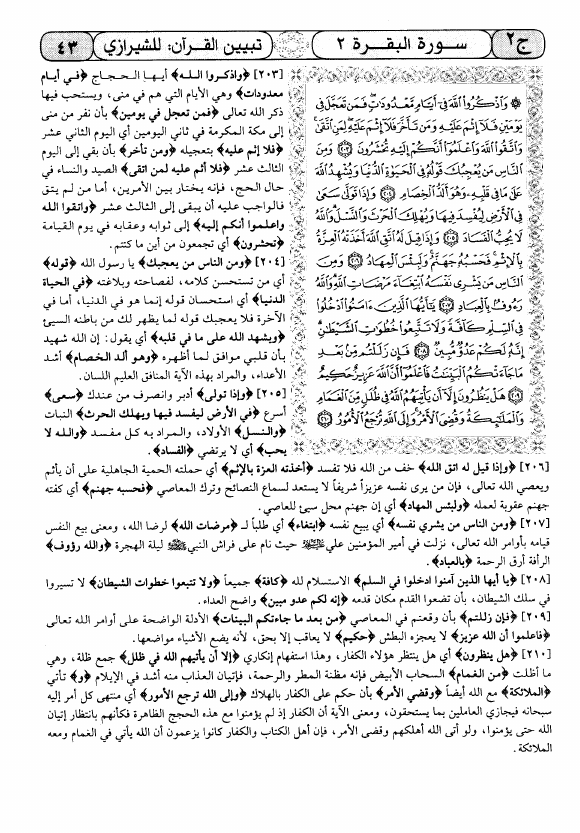 ج٢
سورة البقرة ٢
تبيين القرآن: للشيرازي
٤٣
۞ وَاذْكُرُوا اللَّهَ فِي أَيَّامٍ مَّعْدُودَاتٍ فَمَن تَعَجَّلَ فِي
يَوْمَيْنِ فَلَا إِثْمَ عَلَيْهِ وَمَن تَأَخَّرَ فَلَا إِثْمَ عَلَيْهِ لِمَنِ اتَّقَىٰ
وَاتَّقُوا اللَّهَ وَاعْلَمُوا أَنَّكُمْ إِلَيْهِ تُحْشَرُونَ ٢٠٣ وَمِنَ
النَّاسِ مَن يُعْجِبُكَ قَوْلُهُ فِي الْحَيَوٰةِ الدُّنْيَا وَيُشْهِدُ اللَّهَ
عَلَىٰ مَا فِي قَلْبِهِ وَهُوَ أَلَدُّ الْخِصَامِ ٢٠٤ وَإِذَا تَوَلَّىٰ سَعَىٰ
فِي الْأَرْضِ لِيُفْسِدَ فِيهَا وَيُهْلِكَ الْحَرْثَ وَالنَّسْلَ وَاللَّهُ
لَا يُحِبُّ الْفَسَادَ ٢٠٥ وَإِذَا قِيلَ لَهُ اتَّقِ اللَّهَ أَخَذَتْهُ الْعِزَّةُ
بِالْإِثْمِ فَحَسْبُهُ جَهَنَّمُ وَلَبِئْسَ الْمِهَادُ ٢٠٦ وَمِنَ
النَّاسِ مَن يَشْرِي نَفْسَهُ ابْتِغَاءَ مَرْضَاتِ اللَّهِ وَاللَّهُ
رَءُوفٌ بِالْعِبَادِ ٢٠٧ يَٰأَيُّهَا الَّذِينَ ءَامَنُوا ادْخُلُوا
فِي السِّلْمِ كَافَّةً وَلَا تَتَّبِعُوا خُطُوَٰتِ الشَّيْطَٰنِ
إِنَّهُ لَكُمْ عَدُوٌّ مُّبِينٌ ٢٠٨ فَإِن زَلَلْتُم مِّن بَعْدِ
مَا جَاءَتْكُمُ الْبَيِّنَٰتُ فَاعْلَمُوا أَنَّ اللَّهَ عَزِيزٌ حَكِيمٌ
٢٠٩ هَلْ يَنظُرُونَ إِلَّا أَن يَأْتِيَهُمُ اللَّهُ فِي ظُلَلٍ مِّنَ الْغَمَامِ
وَالْمَلَٰئِكَةُ وَقُضِيَ الْأَمْرُ وَإِلَى اللَّهِ تُرْجَعُ الْأُمُورُ ٢١٠
[٢٠٣] ﴿واذكروا الله﴾ أيها الحجاج ﴿في أيام
معدودات﴾ وهي الأيام التي هم في منى، ويستحب فيها
ذكر الله تعالى ﴿فمن تعجل في يومين﴾ بأن نفر من منى
إلى مكة المكرمة في ثاني اليومين أي اليوم الثاني عشر
﴿فلا إثم عليه﴾ بتعجيله ﴿ومن تأخر﴾ بأن بقي إلى اليوم
الثالث عشر ﴿فلا أثم عليه لمن اتقى﴾ الصيد والنساء في
حال الحج، فإنه يختار بين الأمرين، أما من لم يتق
فالواجب عليه أن يبقى إلى الثالث عشر ﴿واتقوا الله
واعلموا أنكم إليه﴾ إلى ثوابه وعقابه في يوم القيامة
﴿تحشرون﴾ أي تجمعون من أين ما كنتم.
[٢٠٤] ﴿ومن الناس من يعجبك﴾ يا رسول الله ﴿قوله﴾
أي من تستحسن كلامه، لفصاحته وبلاغته ﴿في الحياة
الدنيا﴾ أي استحسان قوله إنما هو في الدنيا، أما في
الآخرة فلا يعجبك قوله لما يظهر لك من باطنه السيئ
﴿ويشهد الله على ما في قلبه﴾ أي يقول: إن الله شهيد
بأن قلبي موافق لما أظهره ﴿وهو ألد الخصام﴾ أشد
الأعداء، والمراد بهذه الآية المنافق العليم اللسان.
[٢٠٥] ﴿وإذا تولى﴾ أدبر وانصرف من عندك ﴿سعى﴾
أسرع ﴿في الأرض ليفسد فيها ويهلك الحرث﴾ النبات
﴿والنسل﴾ الأولاد، والمراد به كل مفسد ﴿والله لا
يحب﴾ أي لا يرتضي ﴿الفساد﴾.
[٢٠٦] ﴿وإذا قيل له اتق الله﴾ خف من الله فلا تفسد ﴿أخذته العزة بالإثم﴾ أي حملته الحمية الجاهلية على أن يأثم
ويعصي الله تعالى، فإن من يرى نفسه عزيزاً شريفاً لا يستعد لسماع النصائح وترك المعاصي ﴿فحسبه جهنم﴾ أي كفته
جهنم عقوبة لعمله ﴿ولبئس المهاد﴾ أي إن جهنم محل سيئ للعاصي.
[٢٠٧] ﴿ومن الناس من يشري نفسه﴾ أي يبيع نفسه ﴿ابتغاء﴾ أي طلباً لـ ﴿مرضات الله﴾ لرضا الله، ومعنى بيع النفس
قيامه بأوامر الله تعالى، نزلت في أمير المؤمنين علي حيث نام على فراش النبي ﷺ ليلة الهجرة ﴿والله رؤوف﴾
الرأفة أرق الرحمة ﴿بالعباد﴾.
[٢٠٨] ﴿يا أيها الذين آمنوا ادخلوا في السلم﴾ الاستسلام لله ﴿كافة﴾ جميعاً ﴿ولا تتبعوا خطوات الشيطان﴾ لا تسيروا
في سلك الشيطان، بأن تضعوا القدم مكان قدمه ﴿إنه لكم عدو مبين﴾ واضح العداء.
[٢٠٩] ﴿فإن زللتم﴾ بأن وقعتم في المعاصي ﴿من بعد ما جاءتكم البينات﴾ الأدلة الواضحة على أوامر الله تعالى
﴿فاعلموا أن الله عزيز﴾ لا يعجزه البطش ﴿حكيم﴾ لا يعاقب إلا بحق، لأنه يضع الأشياء مواضعها.
[٢١٠] ﴿هل ينظرون﴾ أي هل ينتظر هؤلاء الكفار، وهذا استفهام إنكاري ﴿إلا أن يأتيهم الله في ظلل﴾ جمع ظلة، وهي
ما أظلت ﴿من الغمام﴾ السحاب الأبيض فإنه مظنة المطر والرحمة، فإتيان العذاب منه أشد في الإيلام ﴿و﴾ تأتي
﴿الملائكة﴾ مع الله أيضاً ﴿وقضي الأمر﴾ بأن حكم على الكفار بالهلاك ﴿وإلى الله ترجع الأمور﴾ أي منتهى كل أمر إليه
سبحانه فيجازي العاملين بما يستحقون، ومعنى الآية أن الكفار إذ لم يؤمنوا مع هذه الحجج الظاهرة فكأنهم بانتظار إتيان
الله حتى يؤمنوا، ولو أتى الله أهلكهم وقضى الأمر، فإن أهل الكتاب والكفار كانوا يزعمون أن الله يأتي في الغمام ومعه
الملائكة.